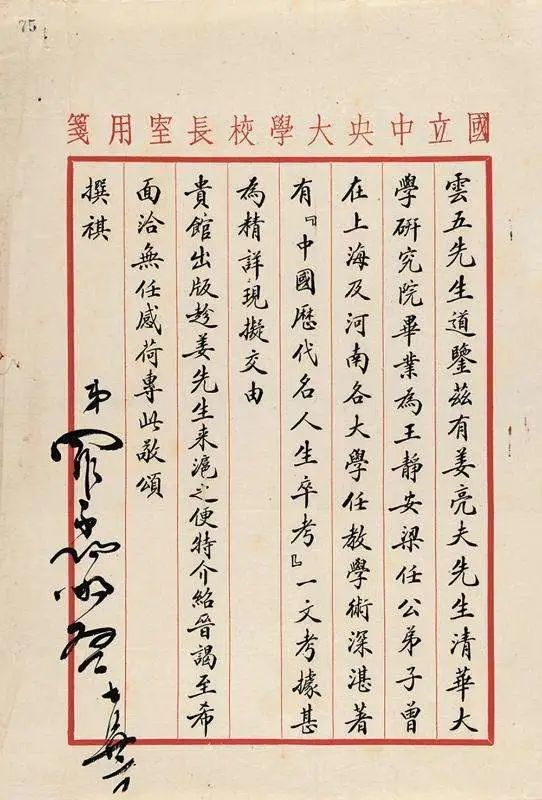 75
國立中央大學校長室用箋
雲五先生道鑒茲有姜亮夫先生清華大
學研究院畢業為王靜安梁任公弟子曾
在上海及河南各大學任教學術深湛著
有『中國歷代名人生卒考』一文考據甚
為精詳現擬交由
貴館出版趁姜先生來滬之便特介紹晉謁至希
面洽無任感荷專此敬頌
撰祺
弟